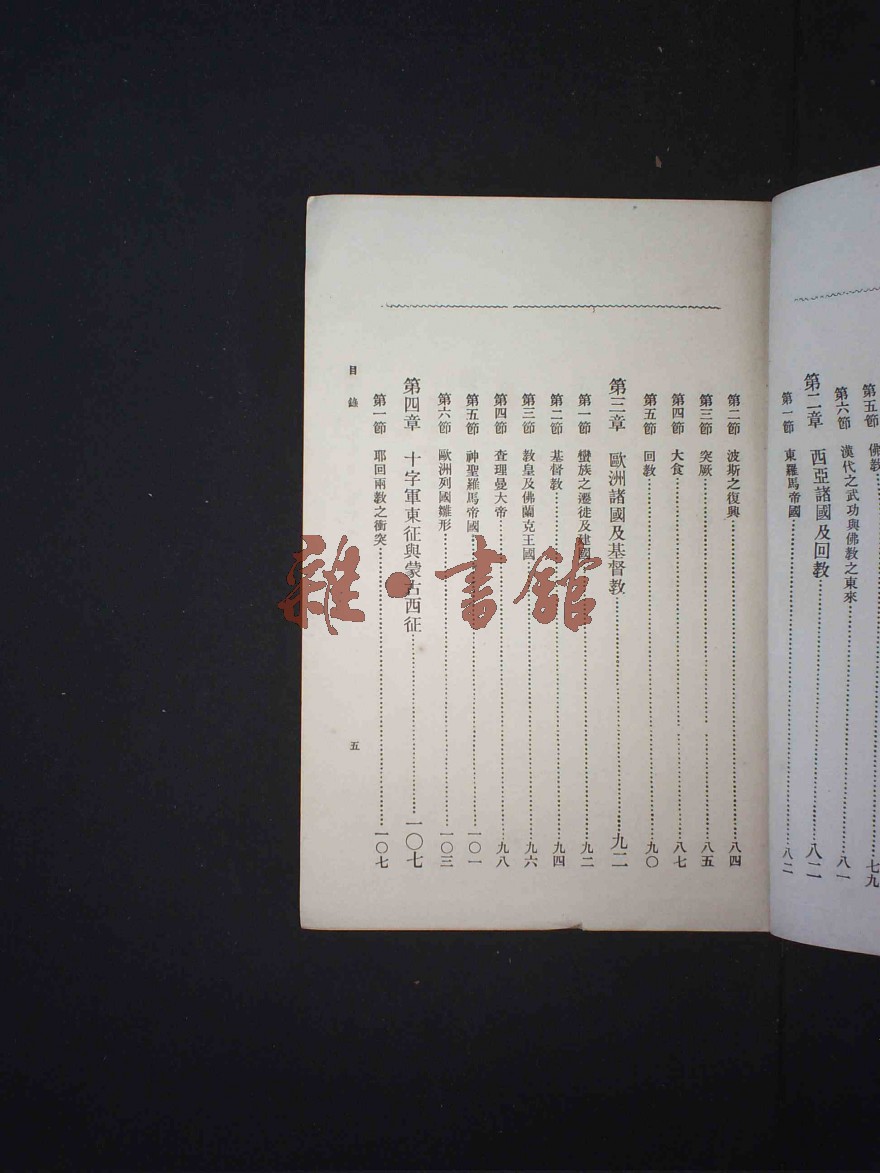 第五節 佛教……七九
第六節 漢代之武功與佛教之東來……八一
第二章 西亞諸國及回教……八二
第一節 東羅馬帝國……八二
第二節 波斯之復興……八四
第三節 突厥……八五
第四節 大食……八七
第五節 回教……九〇
第三章 歐洲諸國及基督教……九二
第一節 蠻族之遷徙及建國……九二
第二節 基督教……九四
第三節 教皇及佛蘭克王國……九六
第四節 查理曼大帝……九八
第五節 神聖羅馬帝國……一〇一
第六節 歐洲列國雛形……一〇三
第四章 十字軍東征與蒙古西征……一〇七
第一節 耶回兩教之衝突……一〇七
目錄 五
雜·書館